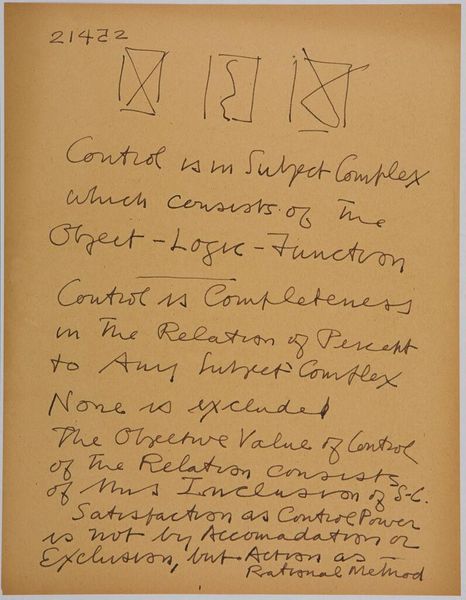 21452
Control is in Subject Complex
which consists of The
Object - Logic - Function
Control is Completeness
in The Relation of Percept
to Any Subject Complex
None is excluded
The Objective Value of Control
of The Relation consists
of this Inclusion of S-C.
Satisfaction as Control Power
is not by Accomadation or
Exclusion, but Action as
Rational Method